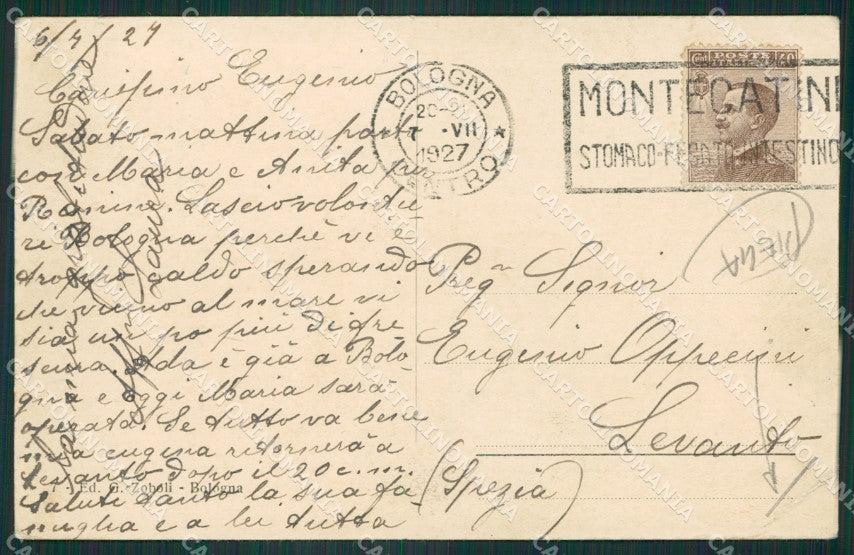 6/7/27
Carissimo Eugenio
Sabato mattina parto
con Maria e Anita per
Rimini. Lascio volentie-
ri Bologna perchè vi è
troppo caldo sperando
che vicino al mare vi
sia un po più di fre
scura. Ada è già a Bolo-
gna e oggi Maria sarà
operata. Se tutto va bene
mia cugina ritornerà a
Levanto dopo il 20 c. m.
Saluti tanto la sua fa
miglia e a lei tutta
BOLOGNA
CENTRO
20-21
7 · VII
1927
POSTE ITALIANE
40
MONTECATINI
STOMACO-FEGATO-INTESTINO
PIEGA
Preg. Signor
Eugenio
Levanto
(Spezia)
Ed. G. Zoboli - Bologna
CARTOLINOMANIA